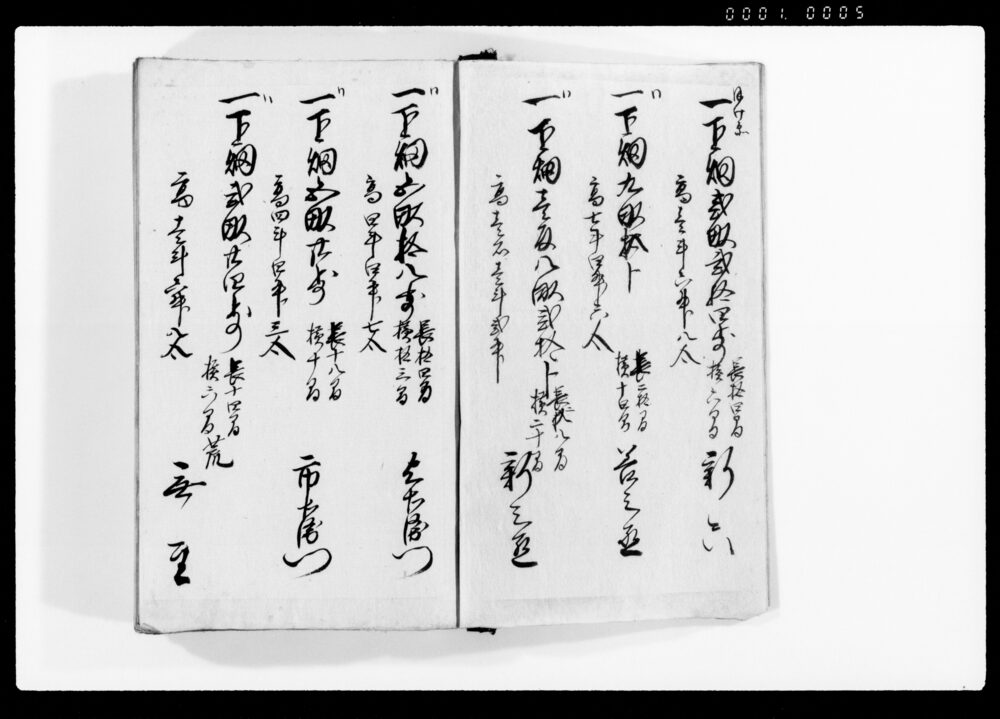 0001. 0005
一下畑弐畝弐拾四歩 長拾四間 横六間 新六
高壱斗六升八合
一下畑九畝拾歩 長二拾間 横十四間 善之丞
高七斗四升六合
一下畑壱反八畝弐拾歩 長廿八間 横二十間 新之丞
高壱石壱斗弐升
一下畑五畝拾八歩 長拾四間 横拾三間
高四斗四升七合
一下畑五畝廿歩 長十八間 横十間 市左衛門
高四斗四升三合
一下畑弐畝廿四歩 長十四間 横六間 荒 無主
高壱斗六升八合